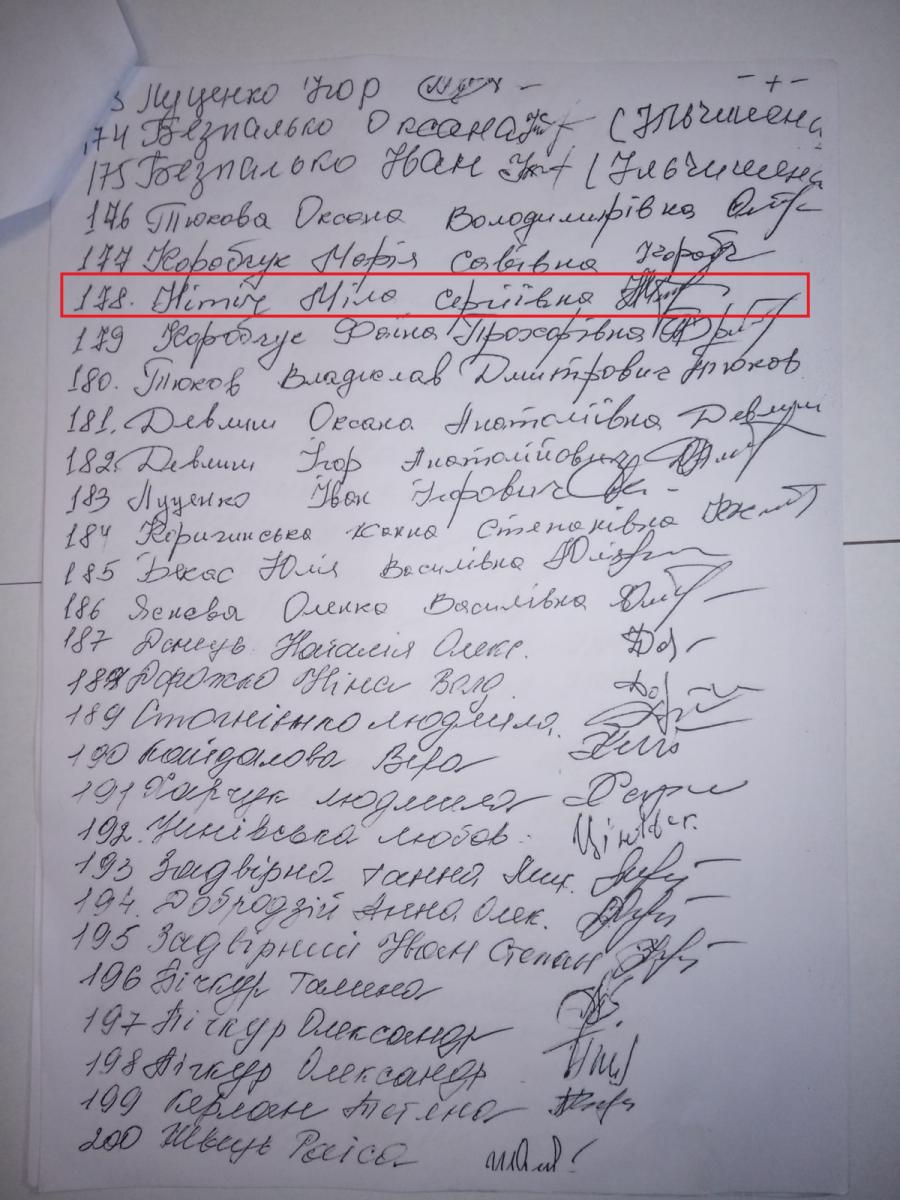 3 Луценко Ігор
174 Безпалько Оксана (Ільчишена
175 Безпалько Іван (Ільчишена
176 Тюкова Оксана Володимирівна
177 Коробчук Марія Савівна Короб
178. Міла Сергіївна
179 Коробчук Фаїна Прохорівна
180. Тюков Владіслав Дмитрович Тюков
181. Девлиш Оксана Анатоліївна Девлиш
182. Девлиш Ігор Анатолійович
183 Луценко Іван Ігорович
184 Ганна Степанівна
185 Бекас Юлія Василівна
186 Яснева Оленка Василівна
187 Донець Наталія Олекс.
188 Дорожко Ніна Волод
189 Стогнієнко Людмила.
190 Кайдалова Віра
191 Харчук Людмила
192. Цинівська Любов.
193 Задвірна Ганна Мих.
194. Добродзій Анна Олек.
195 Задвірний Іван Степан
196 Пічкур Галина
197 Пічкур Олександр
198 Пічкур Олександр
199 Керман Тетяна
200 Швець Раіса